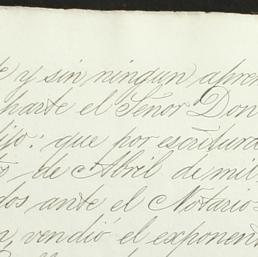 y sin ningun apre
harte el Señor Don
dijo: que por escritura
de Abril de mil
dos ante el Notario
vendió el exponen